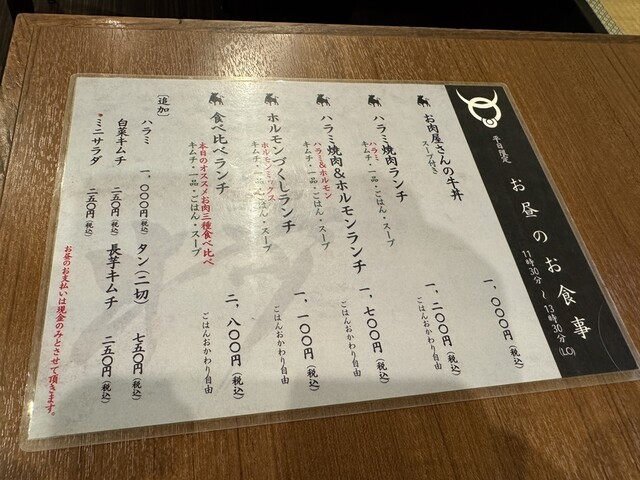 平日限定
お昼のお食事
11時30分～13時30分(LO)
お肉屋さんの牛丼
スープ付き
一、〇〇〇円(税込)
ハラミ焼肉ランチ
ハラミ
キムチ・一品・ごはん・スープ
一、二〇〇円(税込)
ごはんおかわり自由
ハラミ焼肉&ホルモンランチ
ハラミ&ホルモン
キムチ・一品・ごはん・スープ
一、七〇〇円(税込)
ごはんおかわり自由
ホルモンづくしランチ
ホルモンミックス
キムチ・一品・ごはん・スープ
一、一〇〇円(税込)
ごはんおかわり自由
食べ比べランチ
本日のオススメお肉三種食べ比べ
キムチ・一品・ごはん・スープ
二、八〇〇円(税込)
ごはんおかわり自由
〔追加〕
ハラミ 一、〇〇〇円(税込) タン(二切) 七五〇円(税込)
白菜キムチ 二五〇円(税込) 長芋キムチ 二五〇円(税込)
ミニサラダ 二五〇円(税込)
お昼のお支払いは現金のみとさせて頂きます。